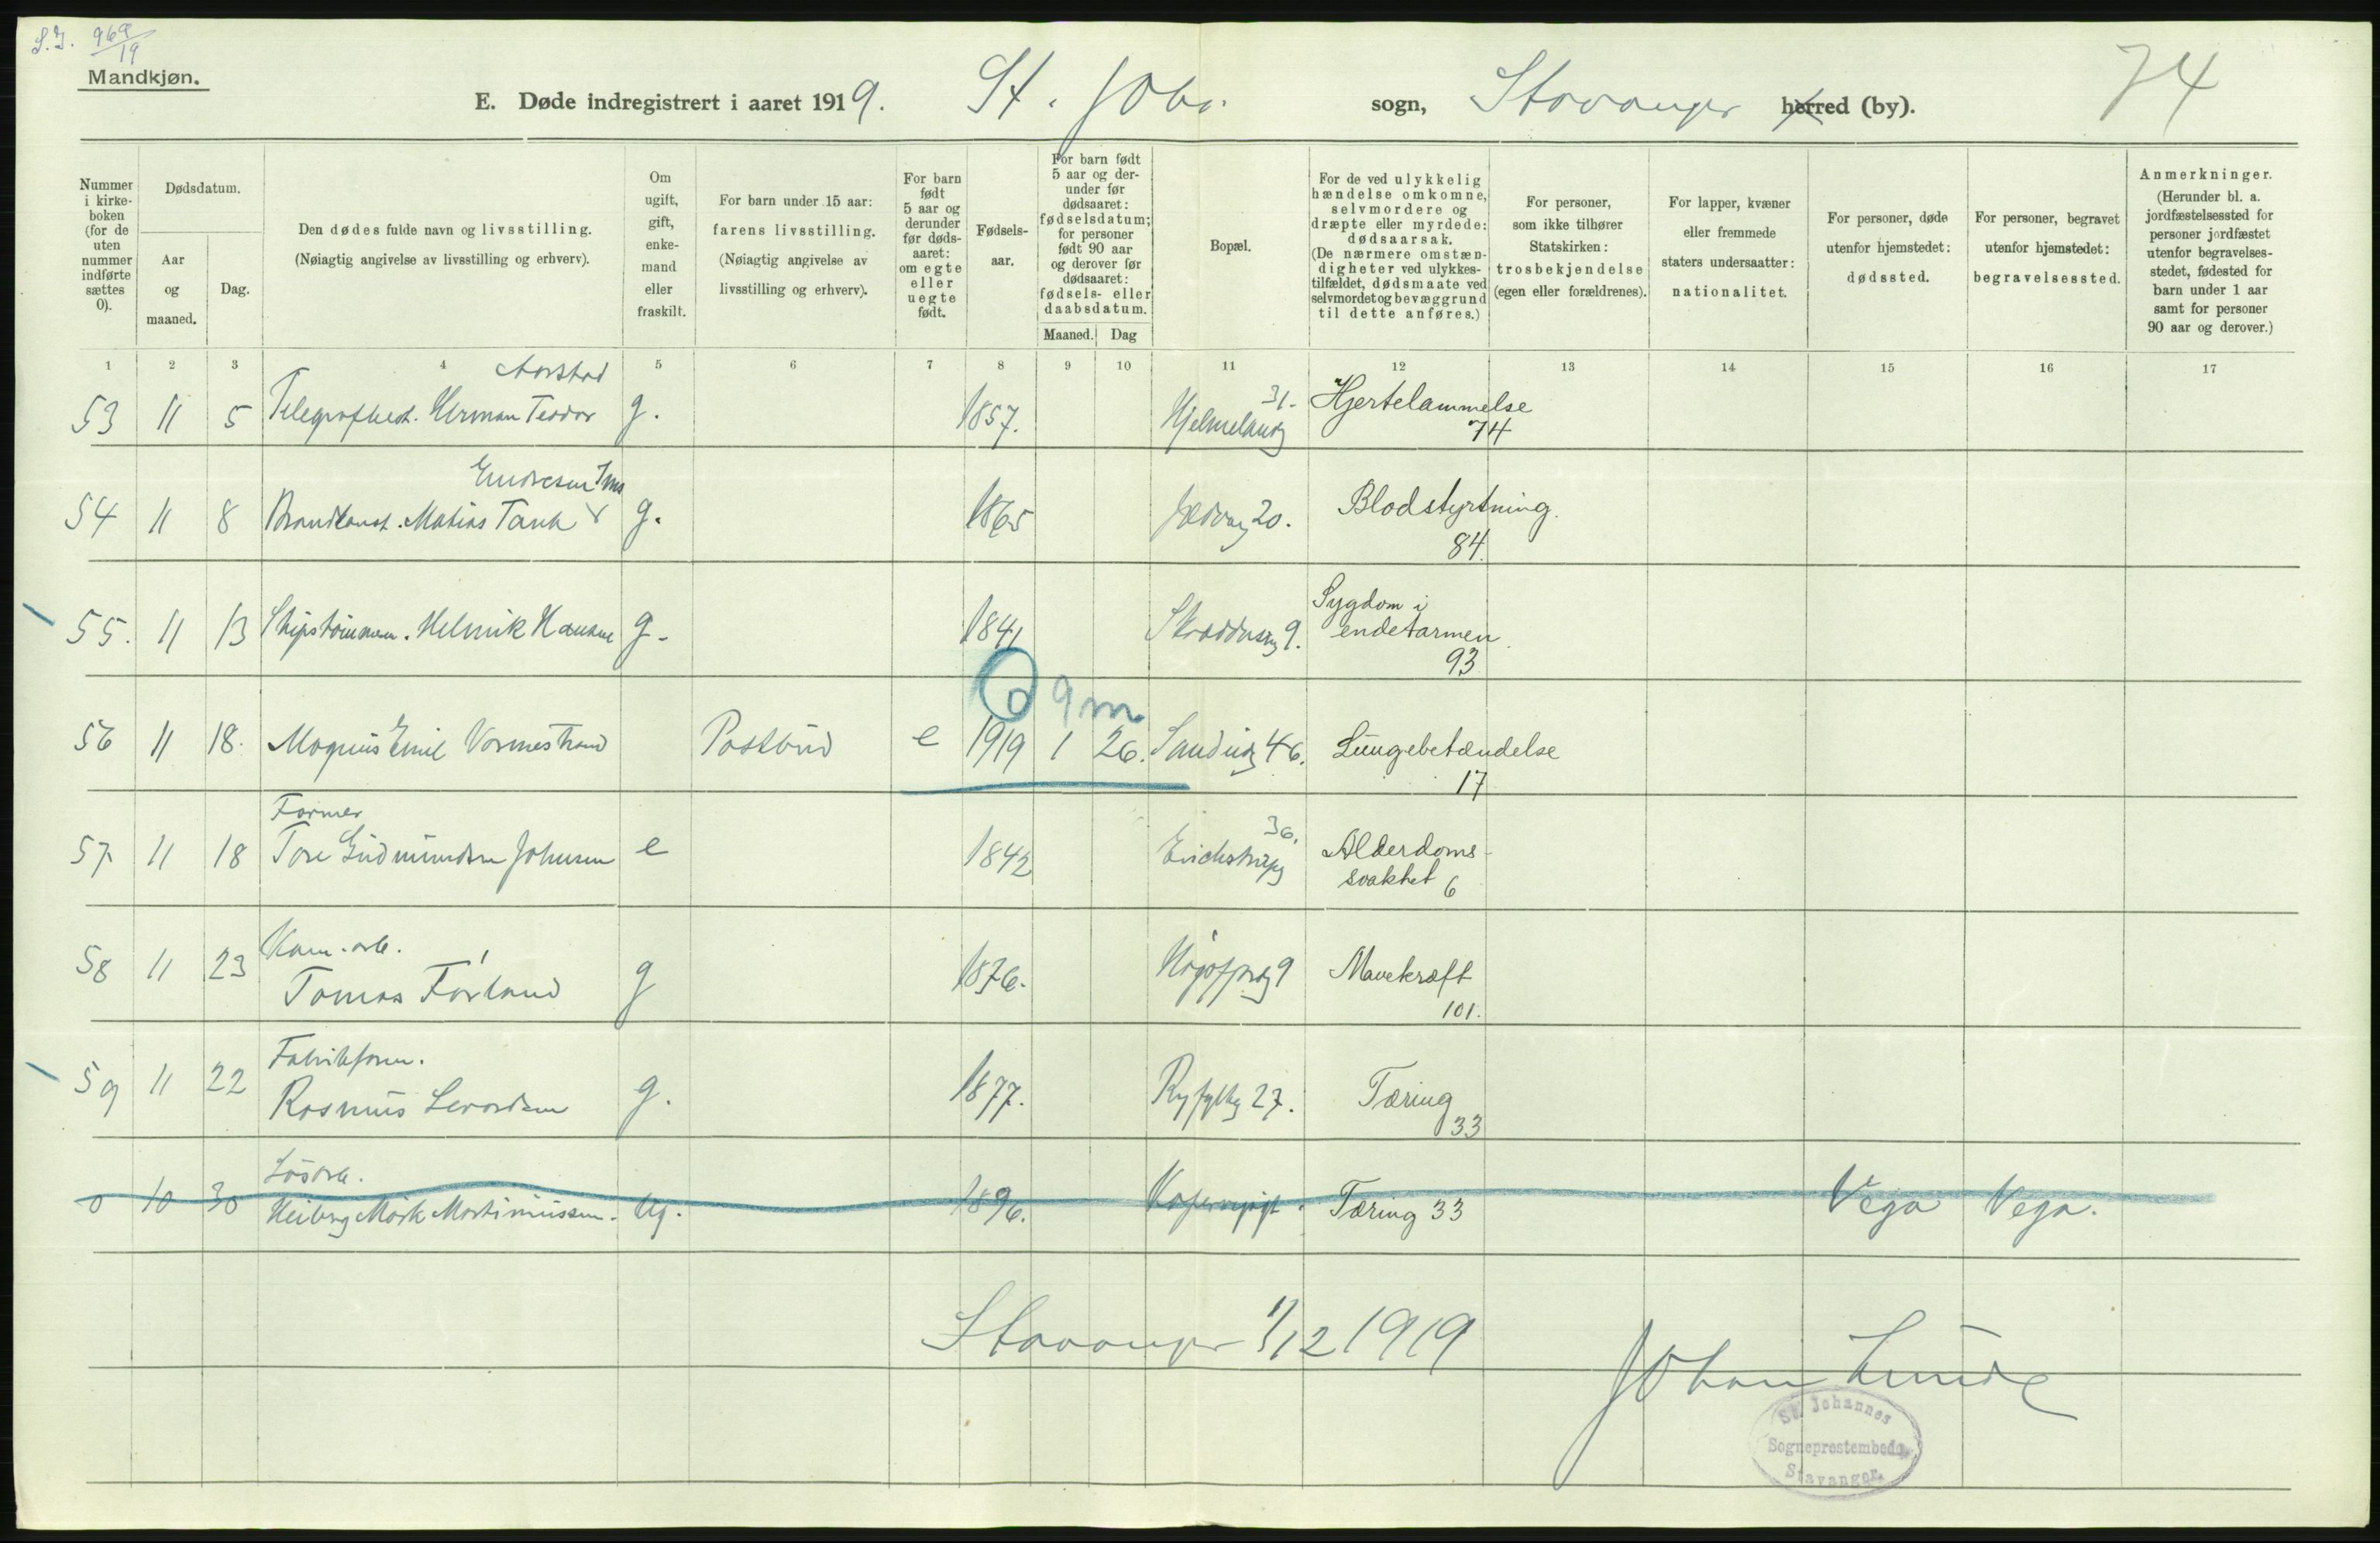 S.J. 969/19
Mandkjøn.
74
E. Døde indregistrert i aaret 1919. St. Johs. sogn, Stavanger herred (by).
Nummer i kirke-boken (for de uten nummer indførte sættes 0).
Dødsdatum.
Aar og maaned.
Dag.
Den dødes fulde navn og livsstilling.
(Nøiagtig angivelse av livsstilling og erhverv).
Om ugift, gift, enke-mand eller fraskilt.
For barn under 15 aar: farens livsstilling.
(Nøiagtig angivelse av livsstilling og erhverv).
For barn født 5 aar og derunder før døds-aaret: om egte eller uegte født.
Fødsels-aar.
For barn født 5 aar og der-under før dødsaaret: fødselsdatum; for personer født 90 aar og derover før dødsaaret: fødsels- eller daabsdatum.
Maaned. Dag
Bopæl.
For de ved ulykkelig hændelse omkomne, selvmordere og dræpte eller myrdede: dødsaarsak.
(De nærmere omstæn-digheter ved ulykkes-tilfældet, dødsmaate ved selvmordet og bevæggrund til dette anføres.)
For personer, som ikke tilhører Statskirken: trosbekjendelse (egen eller forældrenes).
For lapper, kvæner eller fremmede staters undersaatter: nationalitet.
For personer, døde utenfor hjemstedet: dødssted.
For personer, begravet utenfor hjemstedet: begravelsessted.
Anmerkninger.
(Herunder bl. a. jordfæstelsessted for personer jordfæstet utenfor begravelses-stedet, fødested for barn under 1 aar samt for personer 90 aar og derover.)
1 2 3 4 5 6 7 8 9 10 11 12 13 14 15 16 17
Aarstad
53 11 5 Telegrafbest. Herman Teodor g. 1857. Hjelmelandg 31. Hjertelammelse
74
Endresen Ims
54 11 8 Brandkonst. Matias Tank g. 1865 Jædervg 20. Blodstyrtning.
84.
55. 11 13 Skipstømmerm. Helmik Hansen g. 1841 9. Sygdom i
endetarmen
93
9 m
56 11 18. Magnus Emil Vormestrand Postbud e 1919 1 26. Sandvg 46. Lungebetændelse
17
Former
57 11 18 Tore Gudmundsen Johnsen e 1842 Erichstrupg 36. Alderdoms-
svakhet 6
Kom. arb.
58 11 23 Tomas Førland g 1876. 9 Mavekræft
101.
Fabrikform.
59 11 22 Rasmus Sevordsen g. 1877. Ryfylkg 27. Tæring
33
Løsarb.
0 10 30 Heiberg Mørk Martiniussen. Ug. 1896. Tæring 33 Vega Vega.
Stavanger 1/12 1919
Johan Lunde
St. Johannes
Sogneprestembede
Stavanger.